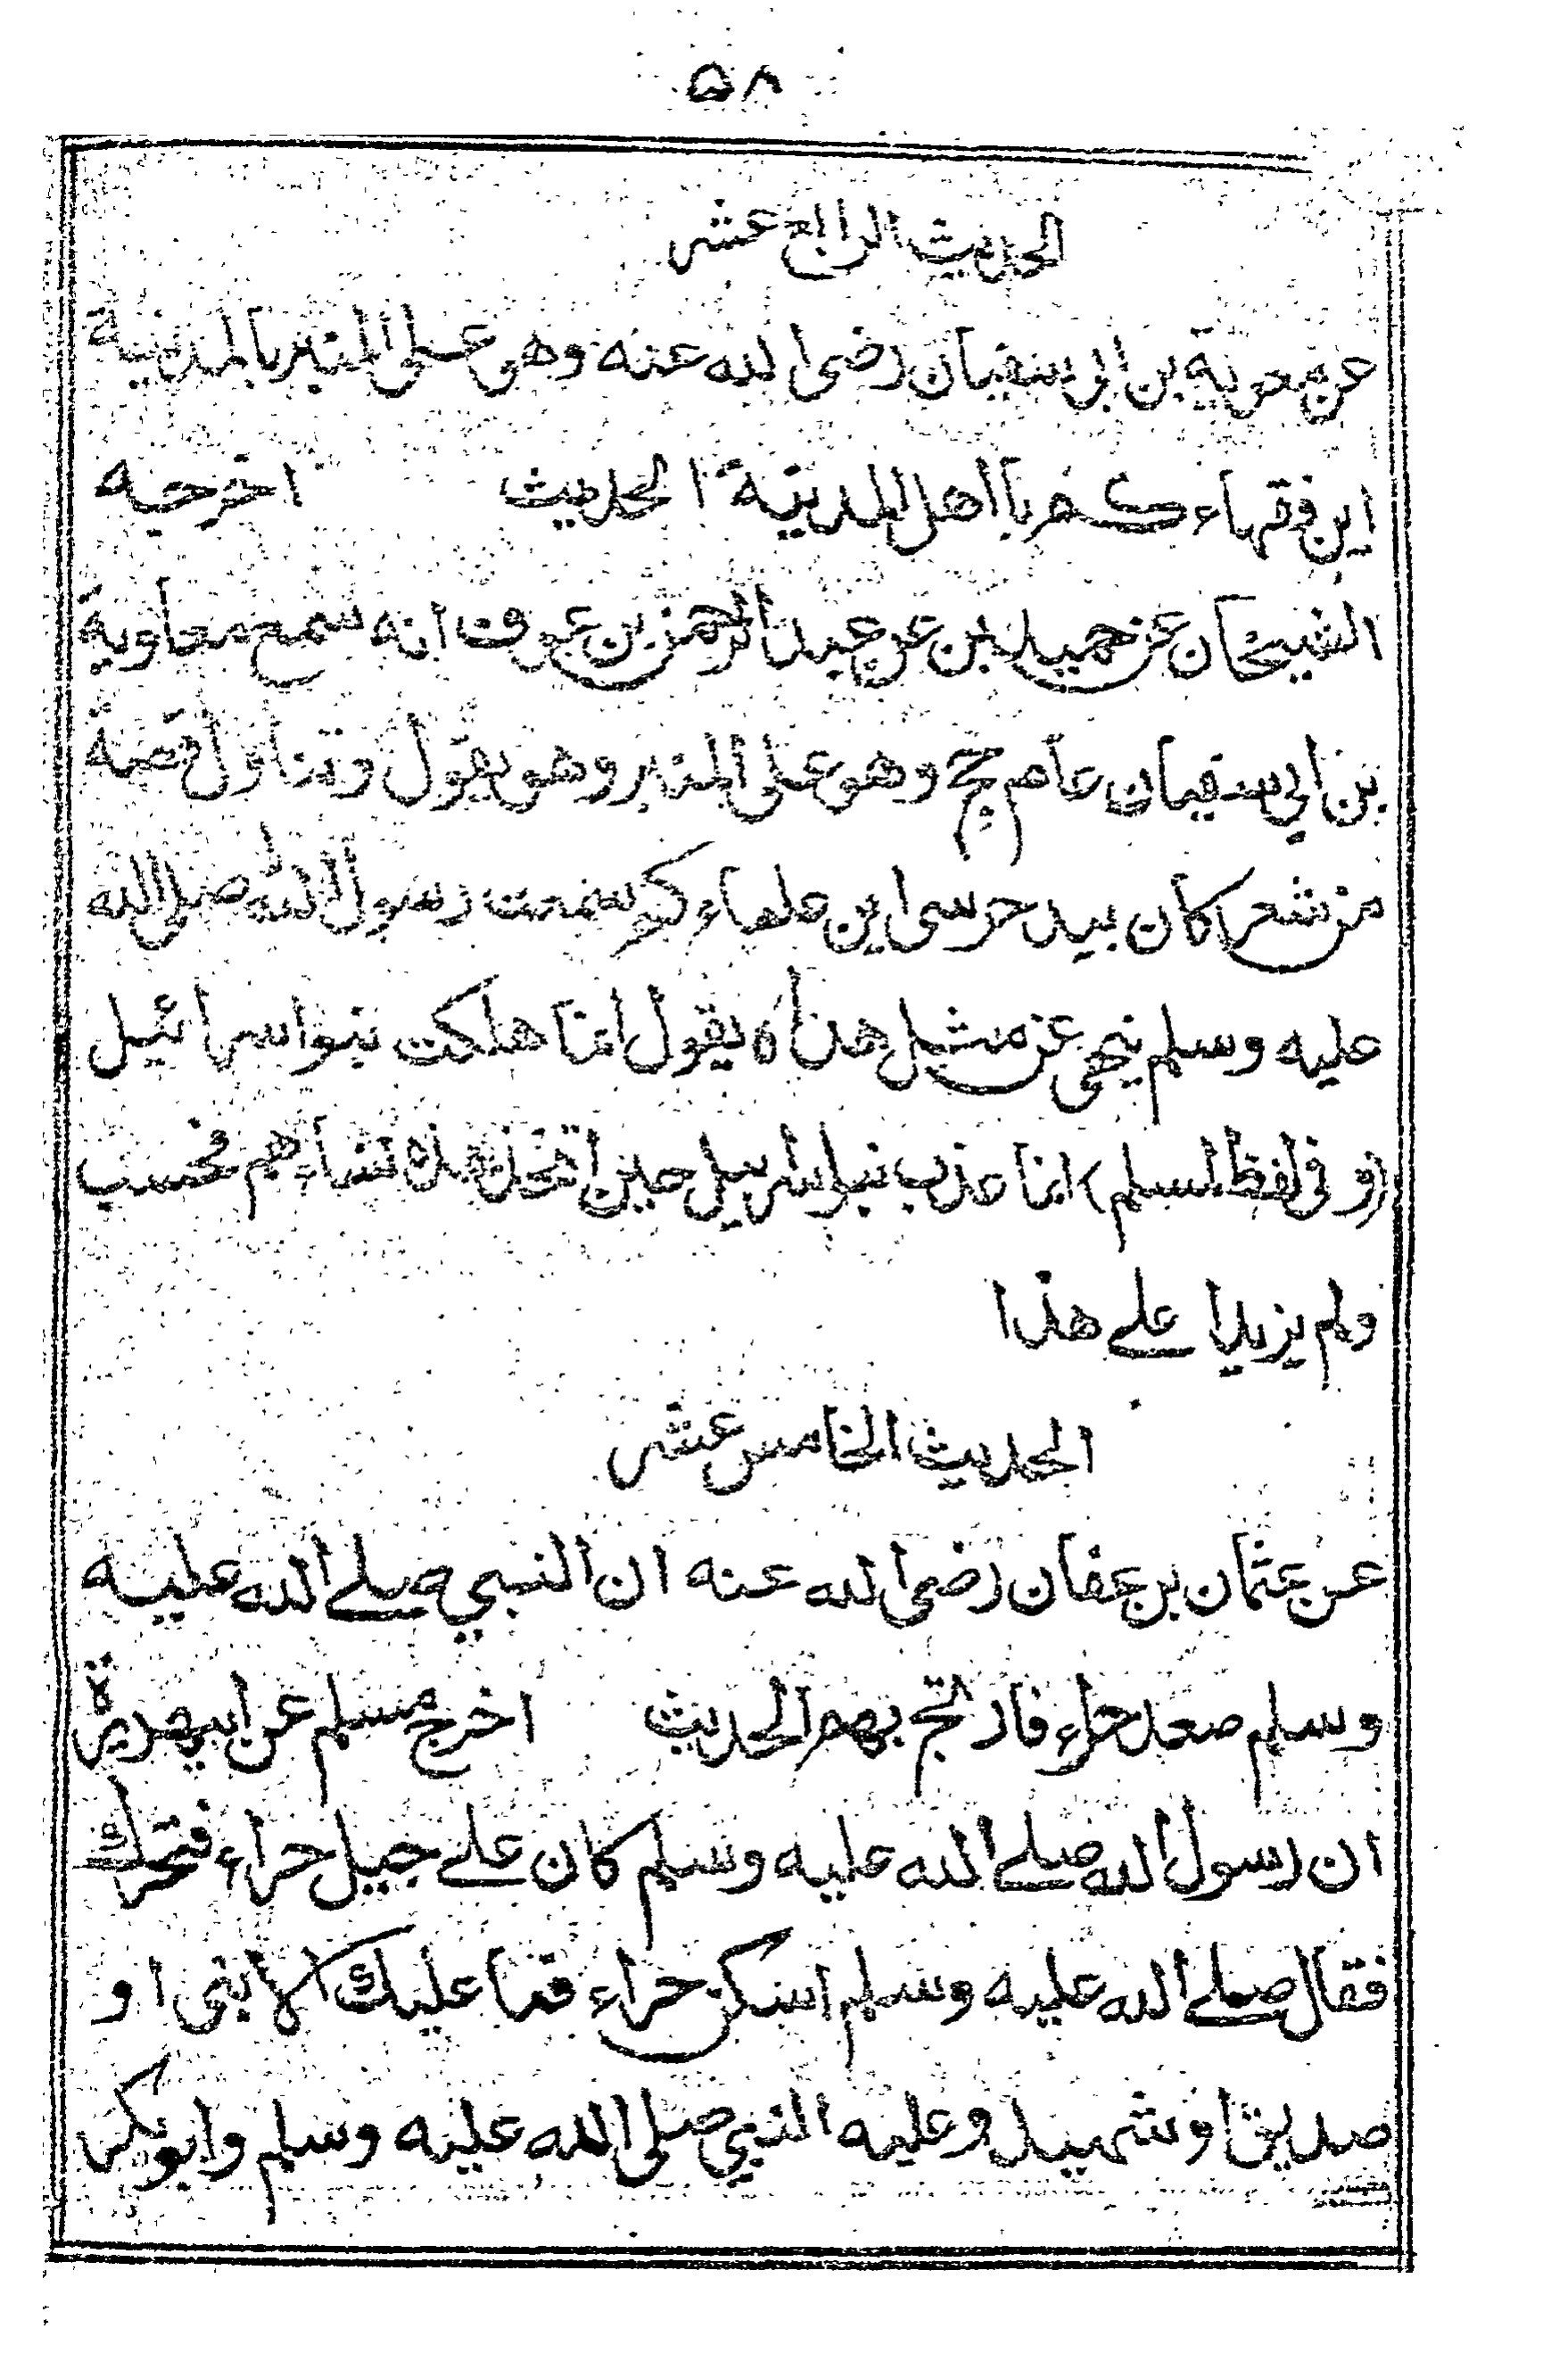 ٥٨
الحديث الرابع عشر
عن معوية بن ابي سفيان رضى الله عنه وهو على المنبر بالمدينة
اين فقهاءكم يا اهل المدينة الحديث اخرجه
الشيخان عن حميد بن عن عبد الرحمن بن عوف انه سمع معاوية
بن ابي سفيان عام حج وهو على المنبر وهو يقول وتناول قصة
من شعر كان بيد حرسى اين علماءكم سمعت رسول الله صلى الله
عليه وسلم ينهى عن مثل هذاه يقول انما هلكت بنوا سرائيل
(و فى لفظ لمسلم) انما عذب بنو اسرييل حين اتخذ هذه نساءهم فحسب
ولم يزيدا على هذا
الحديث الخامس عشر
عن عثمان بن عفان رضى الله عنه ان النبي صلے الله عليه
وسلم صعد حراء فارتج بهم الحديث اخرج مسلم عن ابيهريرة
ان رسول الله صلے الله عليه وسلم كان علے جبل حراء فتحرك
فقال صلے الله عليه وسلم اسكن حراء فما عليك الا نبى او
صديق او شهيد وعليه النبي صلى الله عليه وسلم وابوبكر